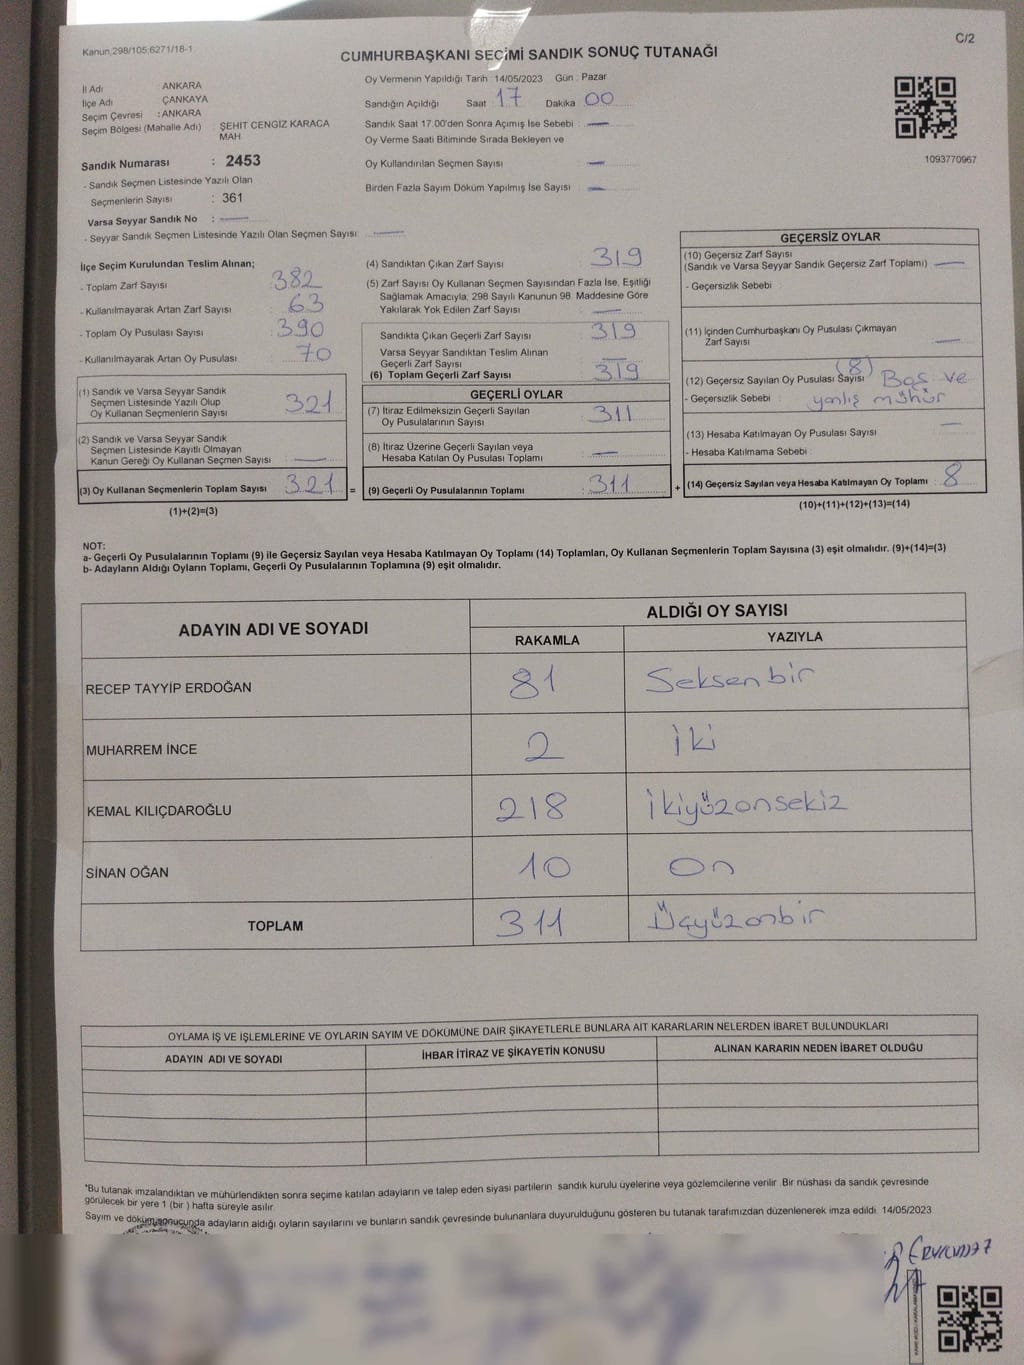 Kanun,298/105,6271/18-1
C/2
CUMHURBAŞKANI SEÇİMİ SANDIK SONUÇ TUTANAĞI
İl Adı ANKARA
İlçe Adı ÇANKAYA
Seçim Çevresi : ANKARA
Seçim Bölgesi (Mahalle Adı) : ŞEHİT CENGİZ KARACA
MAH.
Sandık Numarası : 2453
- Sandık Seçmen Listesinde Yazılı Olan
Seçmenlerin Sayısı : 361
Varsa Seyyar Sandık No :
- Seyyar Sandık Seçmen Listesinde Yazılı Olan Seçmen Sayısı:
Oy Vermenin Yapıldığı Tarih : 14/05/2023 Gün : Pazar
Sandığın Açıldığı Saat : 17 Dakika : 00
Sandık Saat 17.00'den Sonra Açımış İse Sebebi :
Oy Verme Saati Bitiminde Sırada Bekleyen ve
Oy Kullandırılan Seçmen Sayısı :
Birden Fazla Sayım Döküm Yapılmış İse Sayısı :
1093770967
İlçe Seçim Kurulundan Teslim Alınan;
- Toplam Zarf Sayısı : 382
- Kullanılmayarak Artan Zarf Sayısı : 63
- Toplam Oy Pusulası Sayısı : 390
- Kullanılmayarak Artan Oy Pusulası : 70
(1) Sandık ve Varsa Seyyar Sandık
Seçmen Listesinde Yazılı Olup
Oy Kullanan Seçmenlerin Sayısı : 321
(2) Sandık ve Varsa Seyyar Sandık
Seçmen Listesinde Kayıtlı Olmayan
Kanun Gereği Oy Kullanan Seçmen Sayısı :
(3) Oy Kullanan Seçmenlerin Toplam Sayısı : 321 =
(1)+(2)=(3)
(4) Sandıktan Çıkan Zarf Sayısı : 319
(5) Zarf Sayısı Oy Kullanan Seçmen Sayısından Fazla İse, Eşitliği
Sağlamak Amacıyla; 298 Sayılı Kanunun 98. Maddesine Göre
Yakılarak Yok Edilen Zarf Sayısı :
Sandıkta Çıkan Geçerli Zarf Sayısı : 319
Varsa Seyyar Sandıktan Teslim Alınan
Geçerli Zarf Sayısı :
(6) Toplam Geçerli Zarf Sayısı : 319
GEÇERLİ OYLAR
(7) İtiraz Edilmeksizin Geçerli Sayılan
Oy Pusulalarının Sayısı : 311
(8) İtiraz Üzerine Geçerli Sayılan veya
Hesaba Katılan Oy Pusulası Toplamı :
(9) Geçerli Oy Pusulalarının Toplamı : 311 +
GEÇERSİZ OYLAR
(10) Geçersiz Zarf Sayısı
(Sandık ve Varsa Seyyar Sandık Geçersiz Zarf Toplamı) :
- Geçersizlik Sebebi :
(11) İçinden Cumhurbaşkanı Oy Pusulası Çıkmayan
Zarf Sayısı :
(12) Geçersiz Sayılan Oy Pusulası Sayısı : (8) Boş ve
- Geçersizlik Sebebi : yanlış mühür
(13) Hesaba Katılmayan Oy Pusulası Sayısı :
- Hesaba Katılmama Sebebi :
(14) Geçersiz Sayılan veya Hesaba Katılmayan Oy Toplamı : 8
(10)+(11)+(12)+(13)=(14)
NOT:
a- Geçerli Oy Pusulalarının Toplamı (9) ile Geçersiz Sayılan veya Hesaba Katılmayan Oy Toplamı (14) Toplamları, Oy Kullanan Seçmenlerin Toplam Sayısına (3) eşit olmalıdır. (9)+(14)=(3)
b- Adayların Aldığı Oyların Toplamı, Geçerli Oy Pusulalarının Toplamına (9) eşit olmalıdır.
ADAYIN ADI VE SOYADI ALDIĞI OY SAYISI
RAKAMLA YAZIYLA
RECEP TAYYİP ERDOĞAN 81 Seksenbir
MUHARREM İNCE 2 iki
KEMAL KILIÇDAROĞLU 218 ikiyüzonsekiz
SİNAN OĞAN 10 On
TOPLAM 311 Üçyüzonbir
OYLAMA İŞ VE İŞLEMLERİNE VE OYLARIN SAYIM VE DÖKÜMÜNE DAİR ŞİKAYETLERLE BUNLARA AİT KARARLARIN NELERDEN İBARET BULUNDUKLARI
ADAYIN ADI VE SOYADI İHBAR İTİRAZ VE ŞİKAYETİN KONUSU ALINAN KARARIN NEDEN İBARET OLDUĞU
*Bu tutanak imzalandıktan ve mühürlendikten sonra seçime katılan adayların ve talep eden siyasi partilerin sandık kurulu üyelerine veya gözlemcilerine verilir. Bir nüshası da sandık çevresinde
görülecek bir yere 1 (bir ) hafta süreyle asılır.
Sayım ve döküm sonucunda adayların aldığı oyların sayılarını ve bunların sandık çevresinde bulunanlara duyurulduğunu gösteren bu tutanak tarafımızdan düzenlenerek imza edildi. 14/05/2023